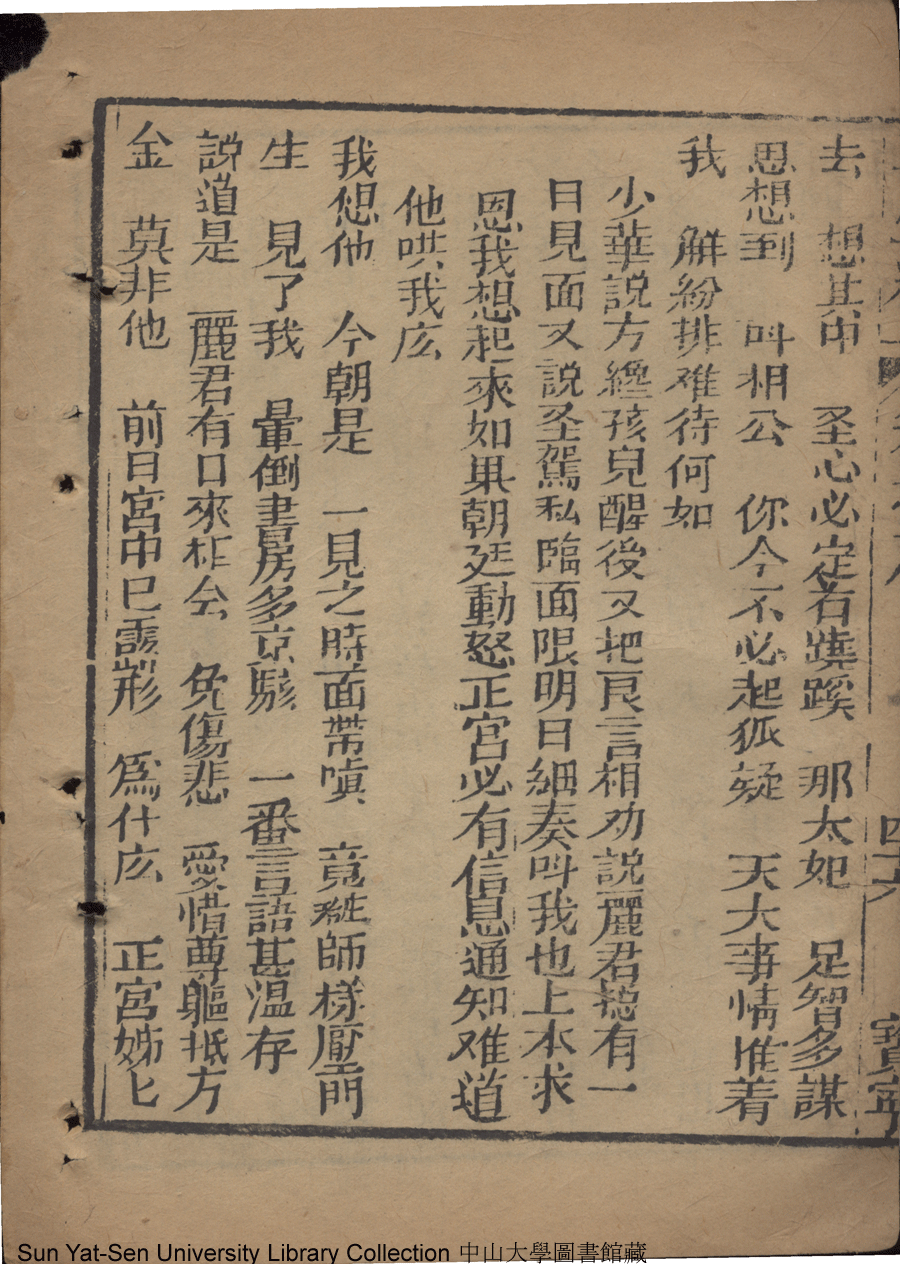 四十八 寶寧
去 想其中 圣心必定有蹺蹊 那太妃 足智多謀
思想到 叫相公 你今不必起狐疑 天大事情惟着
我 觧紛排难待何如
少華説方纔孩兒醒後又把良言相劝説麗君捴有一
日見面又説圣駕私臨面限明日細奏叫我也上本求
恩我想起來如果朝廷動怒正宮必有信息通知难道
他哄我庅
我想他 今朝是 一見之時面帶嗔 竟 師様壓門
生 見了我 暈倒書房多京駭 一番言語甚温存
説道是 麗君有日來相会 免傷悲 愛惜尊軀抵方
金 莫非他 前日宮中已露形 爲什庅 正宮姊匕
Sun Yat-Sen University Library Collection 中山大學圖書館藏